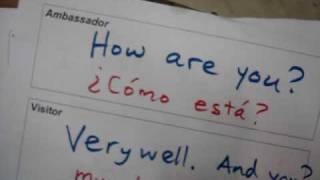 Ambassador
How are you?
¿Cómo está?
Visitor
Very well. And you?